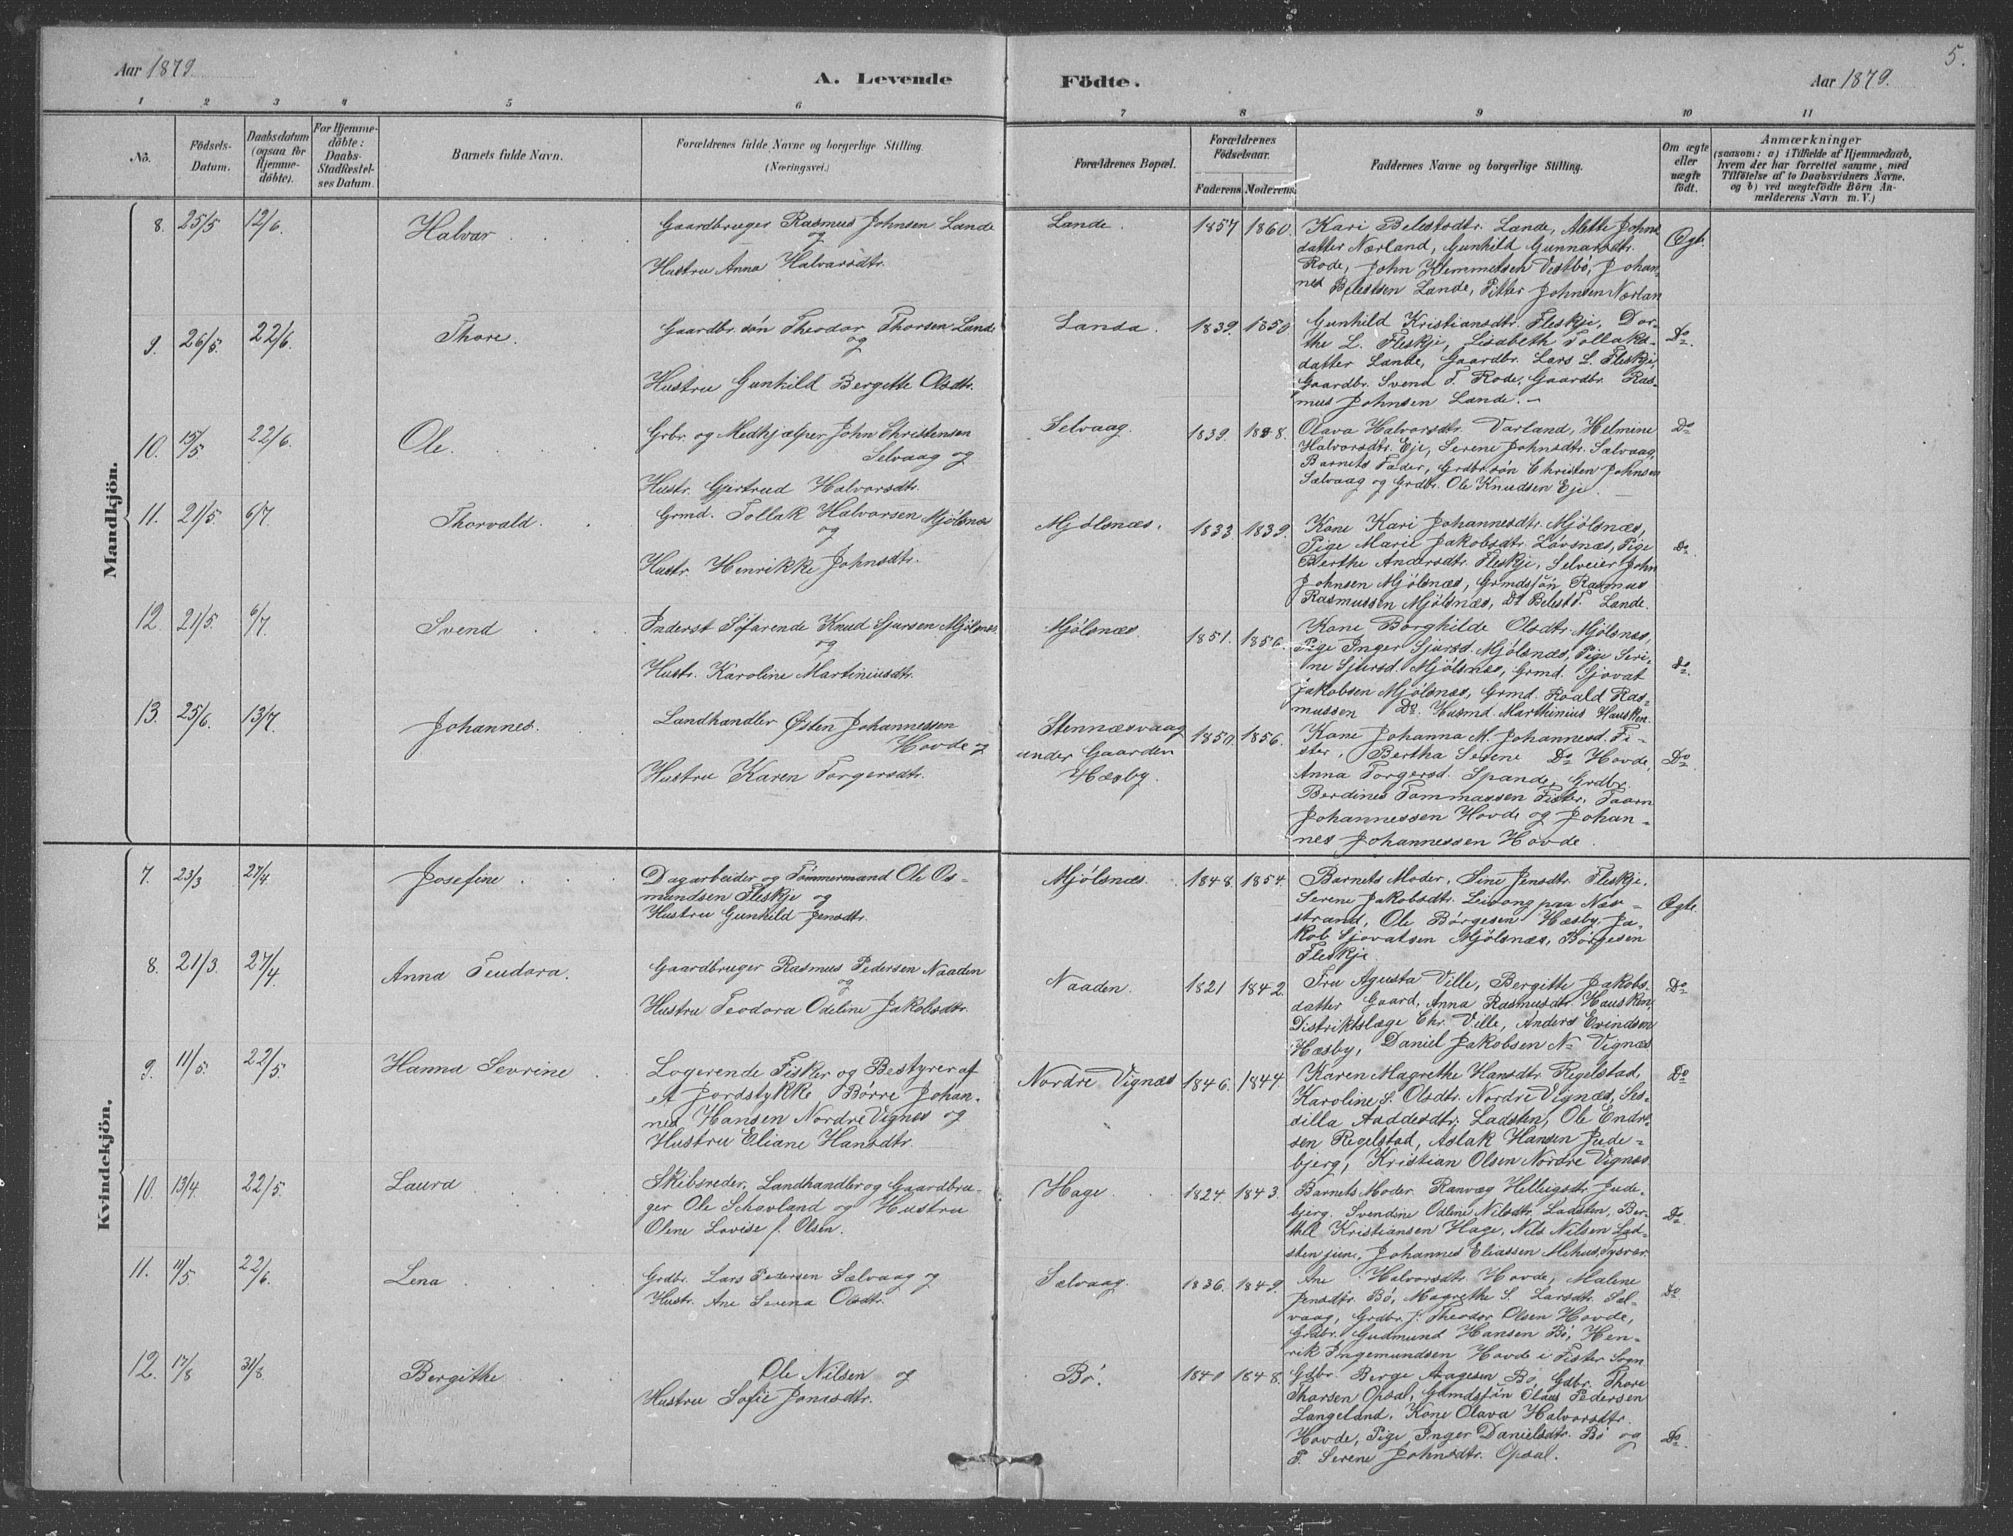 Aar 1879. A. Levende Födte. Aar 1879. 5.
1 2 3 4 5 6 7 8 9 10 11
Nö. Födsels-Datum. Daabsdatum (ogsaa for Hjemme-döbte). For Hjemme-döbte: Daabs-Stadfæstel-ses Datum. Barnets fulde Navn. Forældrenes fulde Navne og borgerlige Stilling. (Næringsvei.) Forældrenes Bopæl. Forældrenes Födselsaar. Faderens. Moderens. Faddernes Navne og borgerlige Stilling. Om ægte eller uægte födt. Anmærkninger (saasom: a) i Tilfælde af Hjemmedaab, hvem der har forrettet samme, med Tilföielse af to Daabsvidners Navne, og b) ved uægtefödte Börn An-melderens Navn m. V.)
Mandkjön.
8. 25/5 12/6. Halvar Gaardbruger Rasmus Johnsen Lande
og
Hustru Anna Halvarsdtr.
Lande. 1857 1860.
Kari Belestsdtr. Lande, Mette Johns
datter Nærland, Gunhild Gunnarsdtr.
Rode, John Klemmetsen Vestbö, Johan-
nes Belestsen Lande, Pitter Johnsen Nærlan
Ægt.
9. 26/5. 22/6. Thore. Gaardbr. sön Theodor Thorsen Lande
og
Hustru Gunhild Bergitte Olsdtr.
Landa. 1839. 1850
Gunhild Kristiansdtr. Fleskje, Dor-
the L. Fleskje, Lisabeth Tollaks-
datter Lande, Gaardbr. Lars L. Fleskje,
Gaardbr. Svend T. Rode, Gaardbr. Ras-
mus Johnsen Lande. -
Do.
10. 15/5 22/6. Ole. Grbr. og Medhjælper John Christensen
Selvaag og
Hustr. Gjertrud Halvorsdtr.
Selvaag. 1839.
Olava Halvorsdtr. Varland, Helmine
Halvorsdtr. Eje, Serene Johnsdtr. Sælvaag,
Barnets Fader, Grdbr. sön Christen Johnsen
Sælvaag og Grdbr. Ole Knudsen Eje.
Do
11. 21/5. 6/7. Thorvald. Grmd. Tollak Halvorsen Mjölsnæs
og
Hustr. Henrikke Johnsdtr.
Mjölsnæs. 1833 1839.
Kone Kari Johannesdtr. Mjölsnæs,
Pige Marie Jakobsdtr. Lövsnæs, Pige
Berthe Andersdtr. Fleskje, Selveier John
Johnsen Mjölsnæs, Grmdssön Rasmus
Rasmussen Mjölsnæs, Do Belest T. Lande.
Do.
12. 21/5. 6/7. Svend Inderst Söfarende Knud Sjursen Mjölsnæs
og
Hustr. Karoline Martiniusdtr.
Mjölsnæs. 1851. 1856.
Kone Borghilde Olsdtr. Mjölsnæs,
Pige Inger Sjursd. Mjölsnæs, Pige Seri-
ne Sjursd. Mjölsnæs, Grmd. Sjovat
Jakobsen Mjölsnæs, Grmd. Roald Ras-
mussen Do. Husmd. Marthinius Hausken.
Do.
13. 25/6. 13/7. Johannes. Landhandler Östen Johannessen
Hovde og
Hustru Karen Torgersdtr.
Stennæsvaag
under Gaarden
Hæsby.
1850. 1856.
Kone Johanna M. Johannesd. Fi-
ster, Bertha Serene Do Hovde,
Anna Torgersd. Spande, Grdbr.
Berdines Tommassen Fister, Taarn
Johannessen Hovde og Johan-
nes Johannessen Hovde.
Do.
Kvindekjön.
7. 23/3 27/4. Josefine Dagarbeider og Tömmermand Ole Os-
mundsen Fleskje og
Hustru Gunhild Jensdtr.
Mjölsnæs. 1848. 1854.
Barnets Moder, Sine Jensdtr. Fleskje,
Serene Jakobsdtr. Leirong paa Næs-
strand, Ole Börgesen Hæsby, Ja-
kob Sjovatsen Mjölsnæs, Börgesen
Fleskje.
Ægte.
8. 21/3. 27/4 Anna Teudora. Gaardbruger Rasmus Pedersen Naaden
og
Hustru Teodora Odeline Jakobsdtr.
Naaden. 1821 1842.
Fru Agusta Ville, Bergitte Jakobs-
datter Gaard, Anna Rasmusdtr. Hausken,
Distriktslæge Chr. Ville, Anders Evindsen
Hæsby, Daniel Jakobsen N. Vignæs
Do.
9. 11/5. 22/5. Hanna Sevrine Logerende Fisker og Bestyrer af
et Jordstykke Börre Johan-
nes Hansen Nordre Vignes og
Hustru Eliane Hansdtr.
Nordre Vignæs 1846. 1844.
Karen Magrethe Hansdtr. Regelstad,
Karoline S. Olsdtr. Nordre Vignæs, Ses-
silla Aaddesdtr. Ladsten, Ole Endre-
sen Regelstad, Aslak Hansen Jude-
bjerg, Kristian Olsen Nordre Vignæs
Do
10. 13/4. 22/5. Laura Skibsreder, Landhandler og Gaardbru-
ger Ole Schovland og Hustru
Oline Lovise f. Olsen.
Hage. 1824 1843.
Barnets Moder. Ranvæg Helleigsdtr. Jude-
bjerg. Svendsne Odline Nilsdtr. Ladsten, Ber-
thel Kristiansen Hage, Nils Nilsen Lad-
sten june, Johannes Eliassen Mehus, Tysvær
Do.
11. 11/5 22/6. Lena Grdbr. Lars Pedersen Sælvaag og
Hustr. Ane Serena Olsdtr.
Sælvaag. 1836. 1849.
Ane Halvorsdtr. Hovde, Malene
Jensdtr. Bö, Magrethe S. Larsdtr. Sæl-
vaag, Grdbr. f. Theodor Olsen Hovde,
Grdbr. Gudmund Hansen Bö, Hen-
rik Ingemundsen Hovde i Fister Sogn
Do
12. 17/8 31/8 Bergithe Ole Nilsen og
Hustru Sofie Jonasdtr.
Bö. 1840 1848.
Gdbr. Berge Aagesen Bö, Gdbr. Thore
Tharsen Opsal, Gamdssön Olaus Pedersen
Langeland, Kone Olava Halvorsdtr.
Hovde, Pige Inger Danielsdtr. Bö og
P. Serene Johnsdtr. Opsal.
Do.